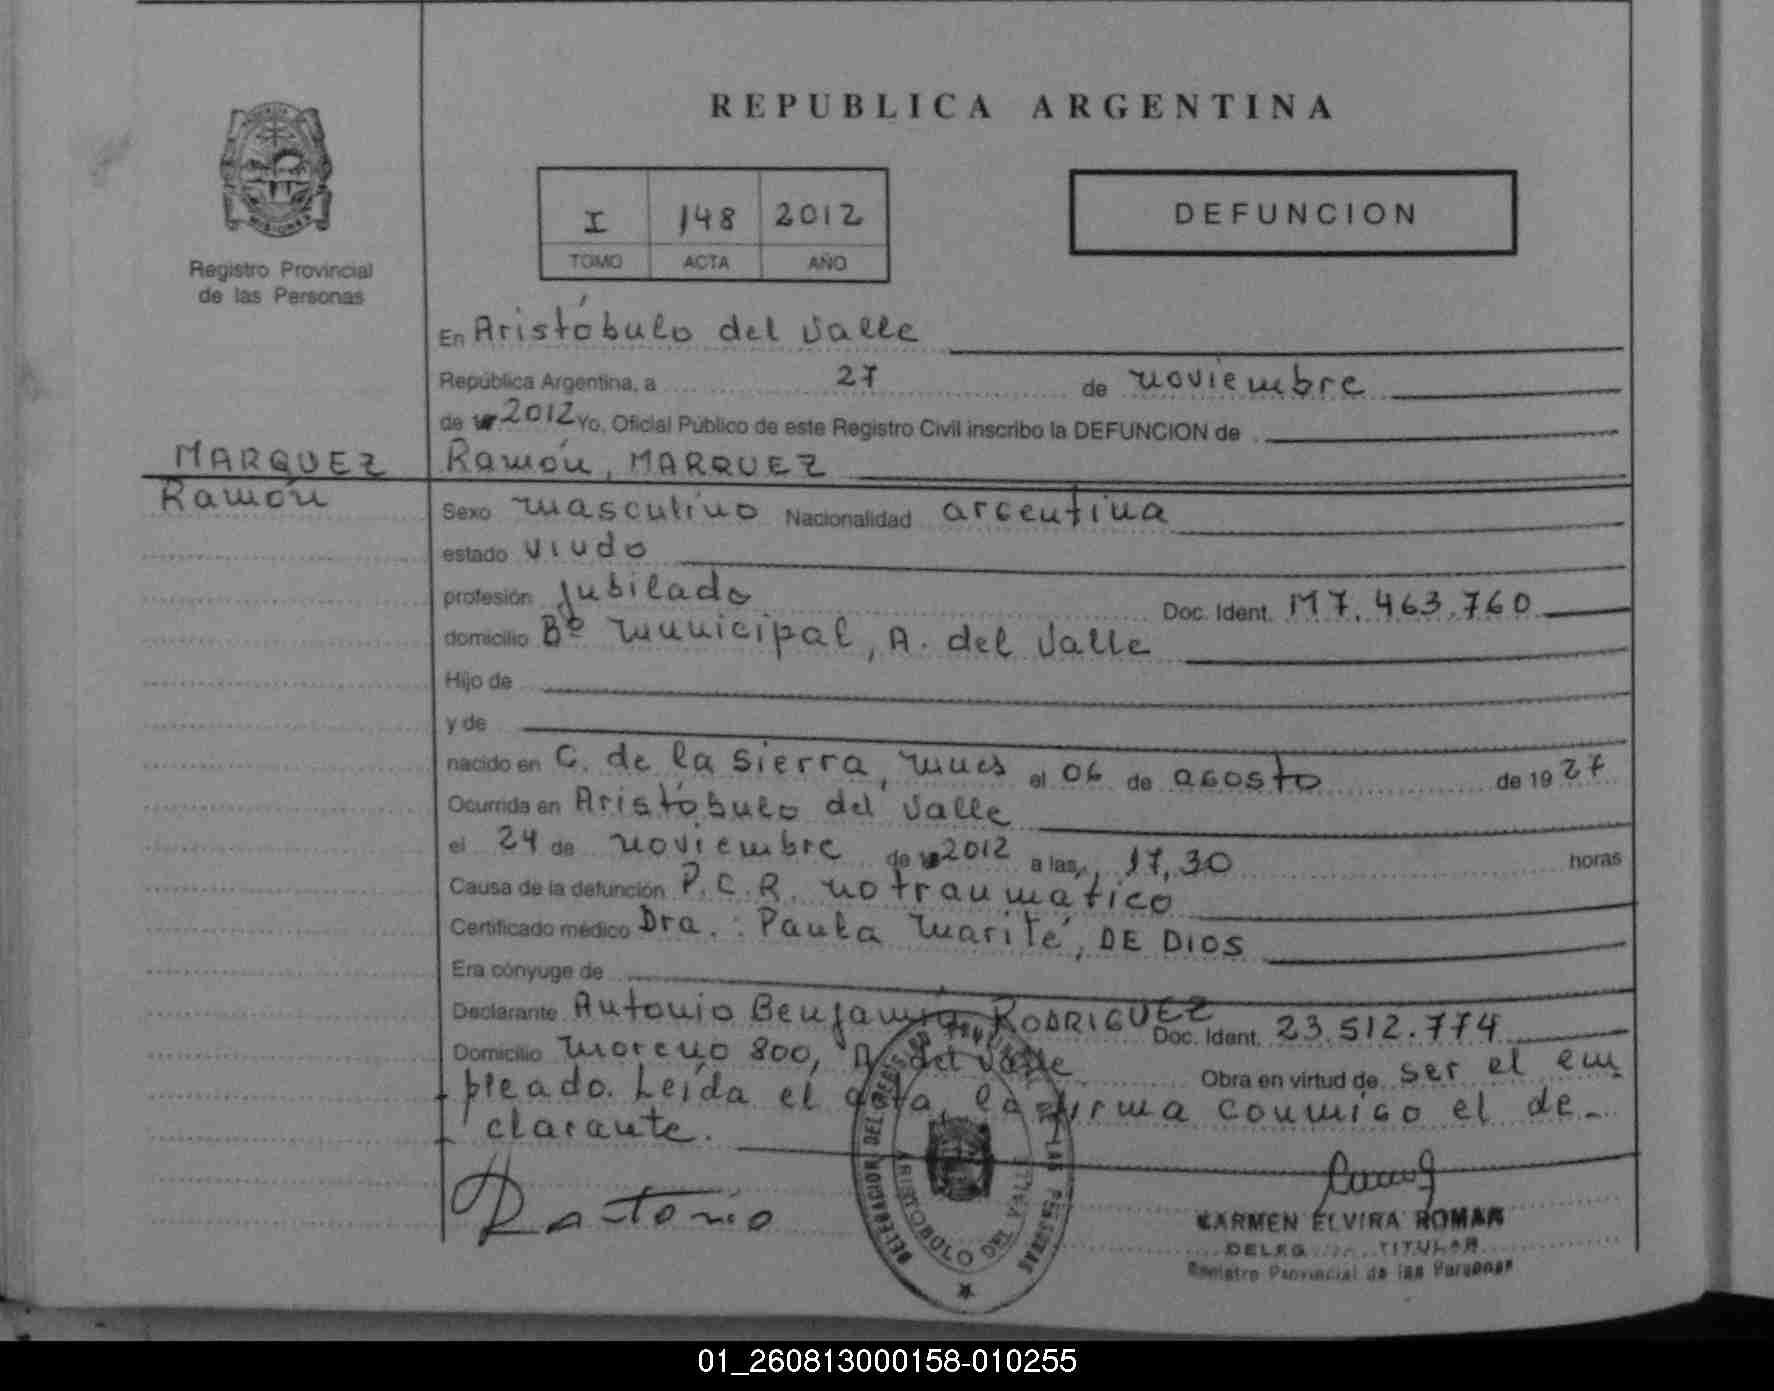 REPUBLICA ARGENTINA
I 148 2012
TOMO ACTA AÑO
DEFUNCION
Registro Provincial
de las Personas
En Aristóbulo del Valle
República Argentina, a 27 de noviembre
de 2012 Yo, Oficial Público de este Registro Civil inscribo la DEFUNCION de
MARQUEZ
Ramón
Ramón, MARQUEZ
Sexo masculino Nacionalidad argentina
estado viudo
profesión jubilado Doc. Ident. M7.463.760
domicilio Bº Municipal, A. del Valle
Hijo de
y de
nacido en C. de la Sierra, Mnes el 06 de agosto de 1927
Ocurrida en Aristóbulo del Valle
el 24 de noviembre de 2012 a las 17,30 horas
Causa de la defunción P.C.R. no traumatico
Certificado médico Dra.: Paula Marité, DE DIOS
Era cónyuge de
Declarante Antonio Benjamín RODRIGUEZ Doc. Ident. 23.512.774
Domicilio Moreno 800, A. del Valle Obra en virtud de ser el em
pleado. Leída el acta, la firma conmigo el de-
clarante.
DELEGACION DEL REGISTRO PROVINCIAL DE LAS PERSONAS
ARISTOBULO DEL VALLE
CARMEN ELVIRA ROMAN
TITULAR
Registro Provincial de las Personas
01_260813000158-010255